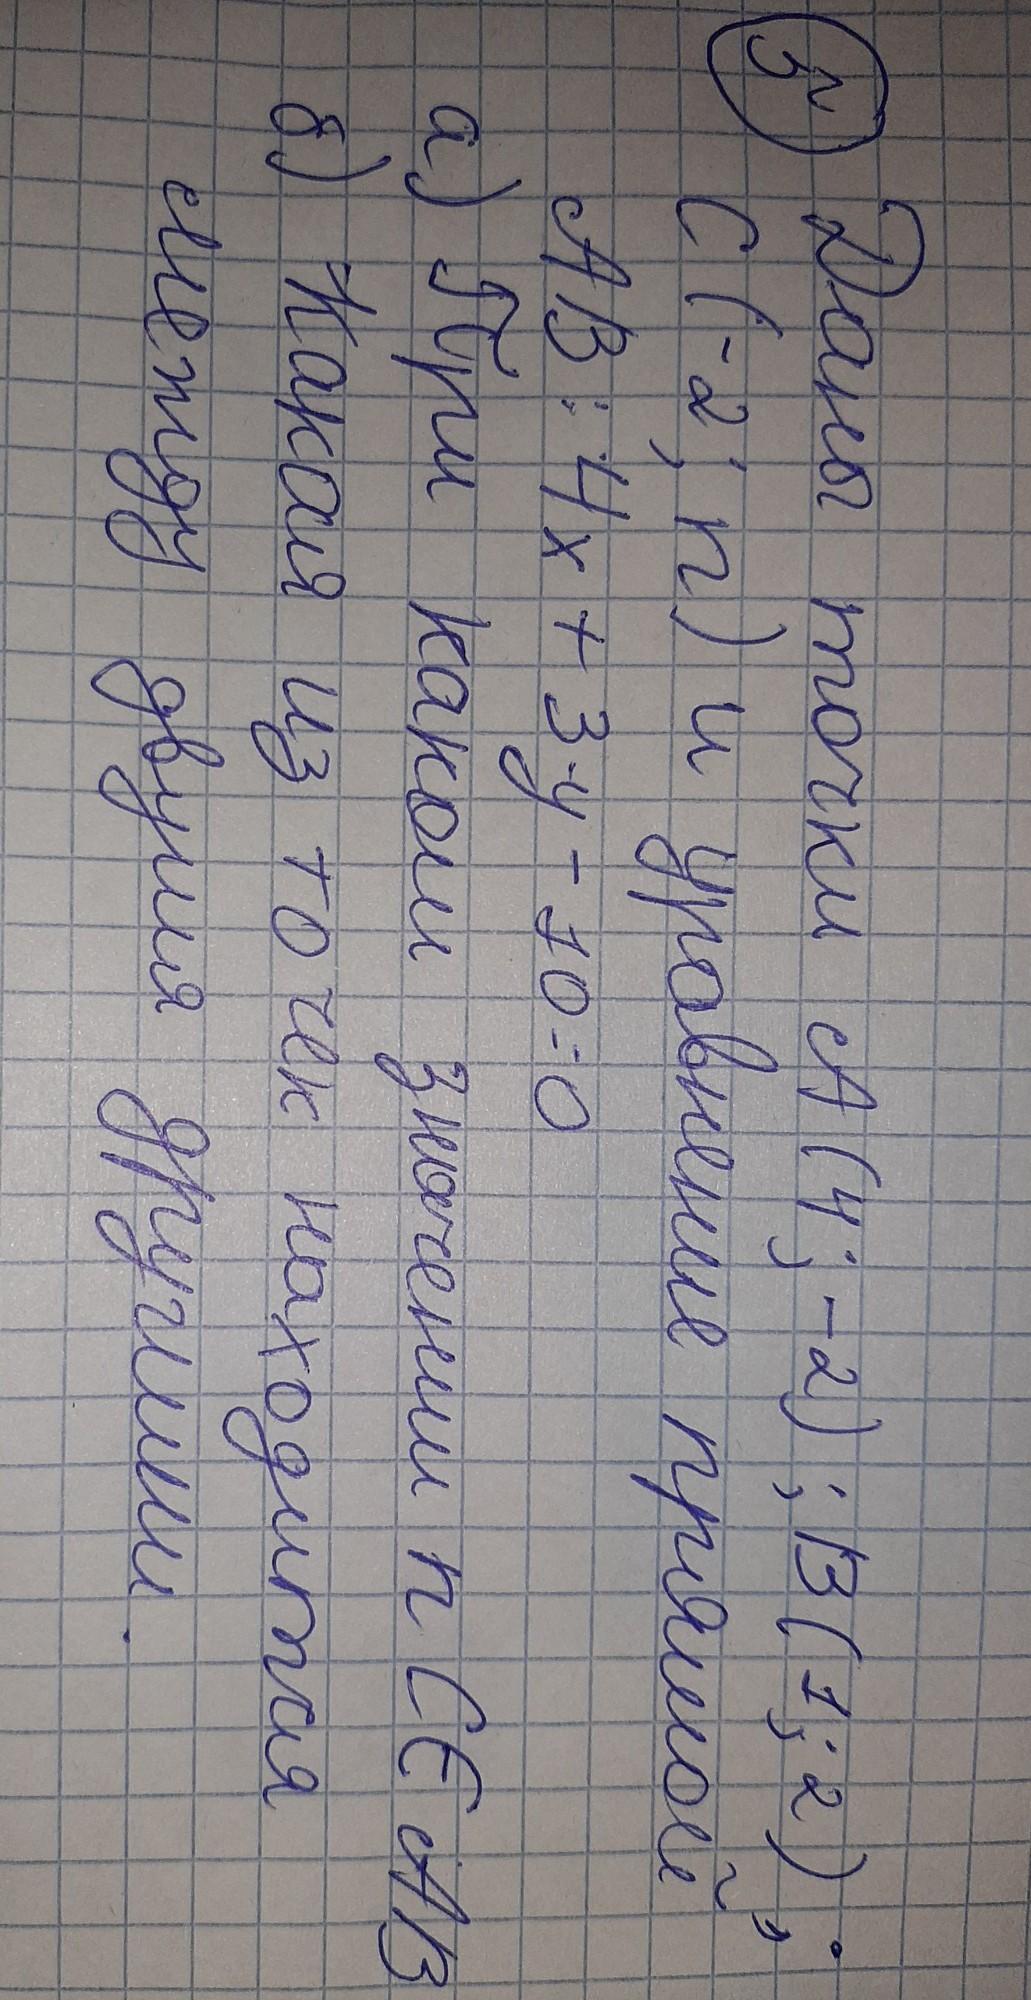 3
Даны точки А(4; -2); В(1; 2);
С(-2; n) и уравнение прямой
АВ: 4x + 3y - 10 = 0
а) При каком значении n С ∈ АВ
б) Какая из точек находится
между двумя другими.